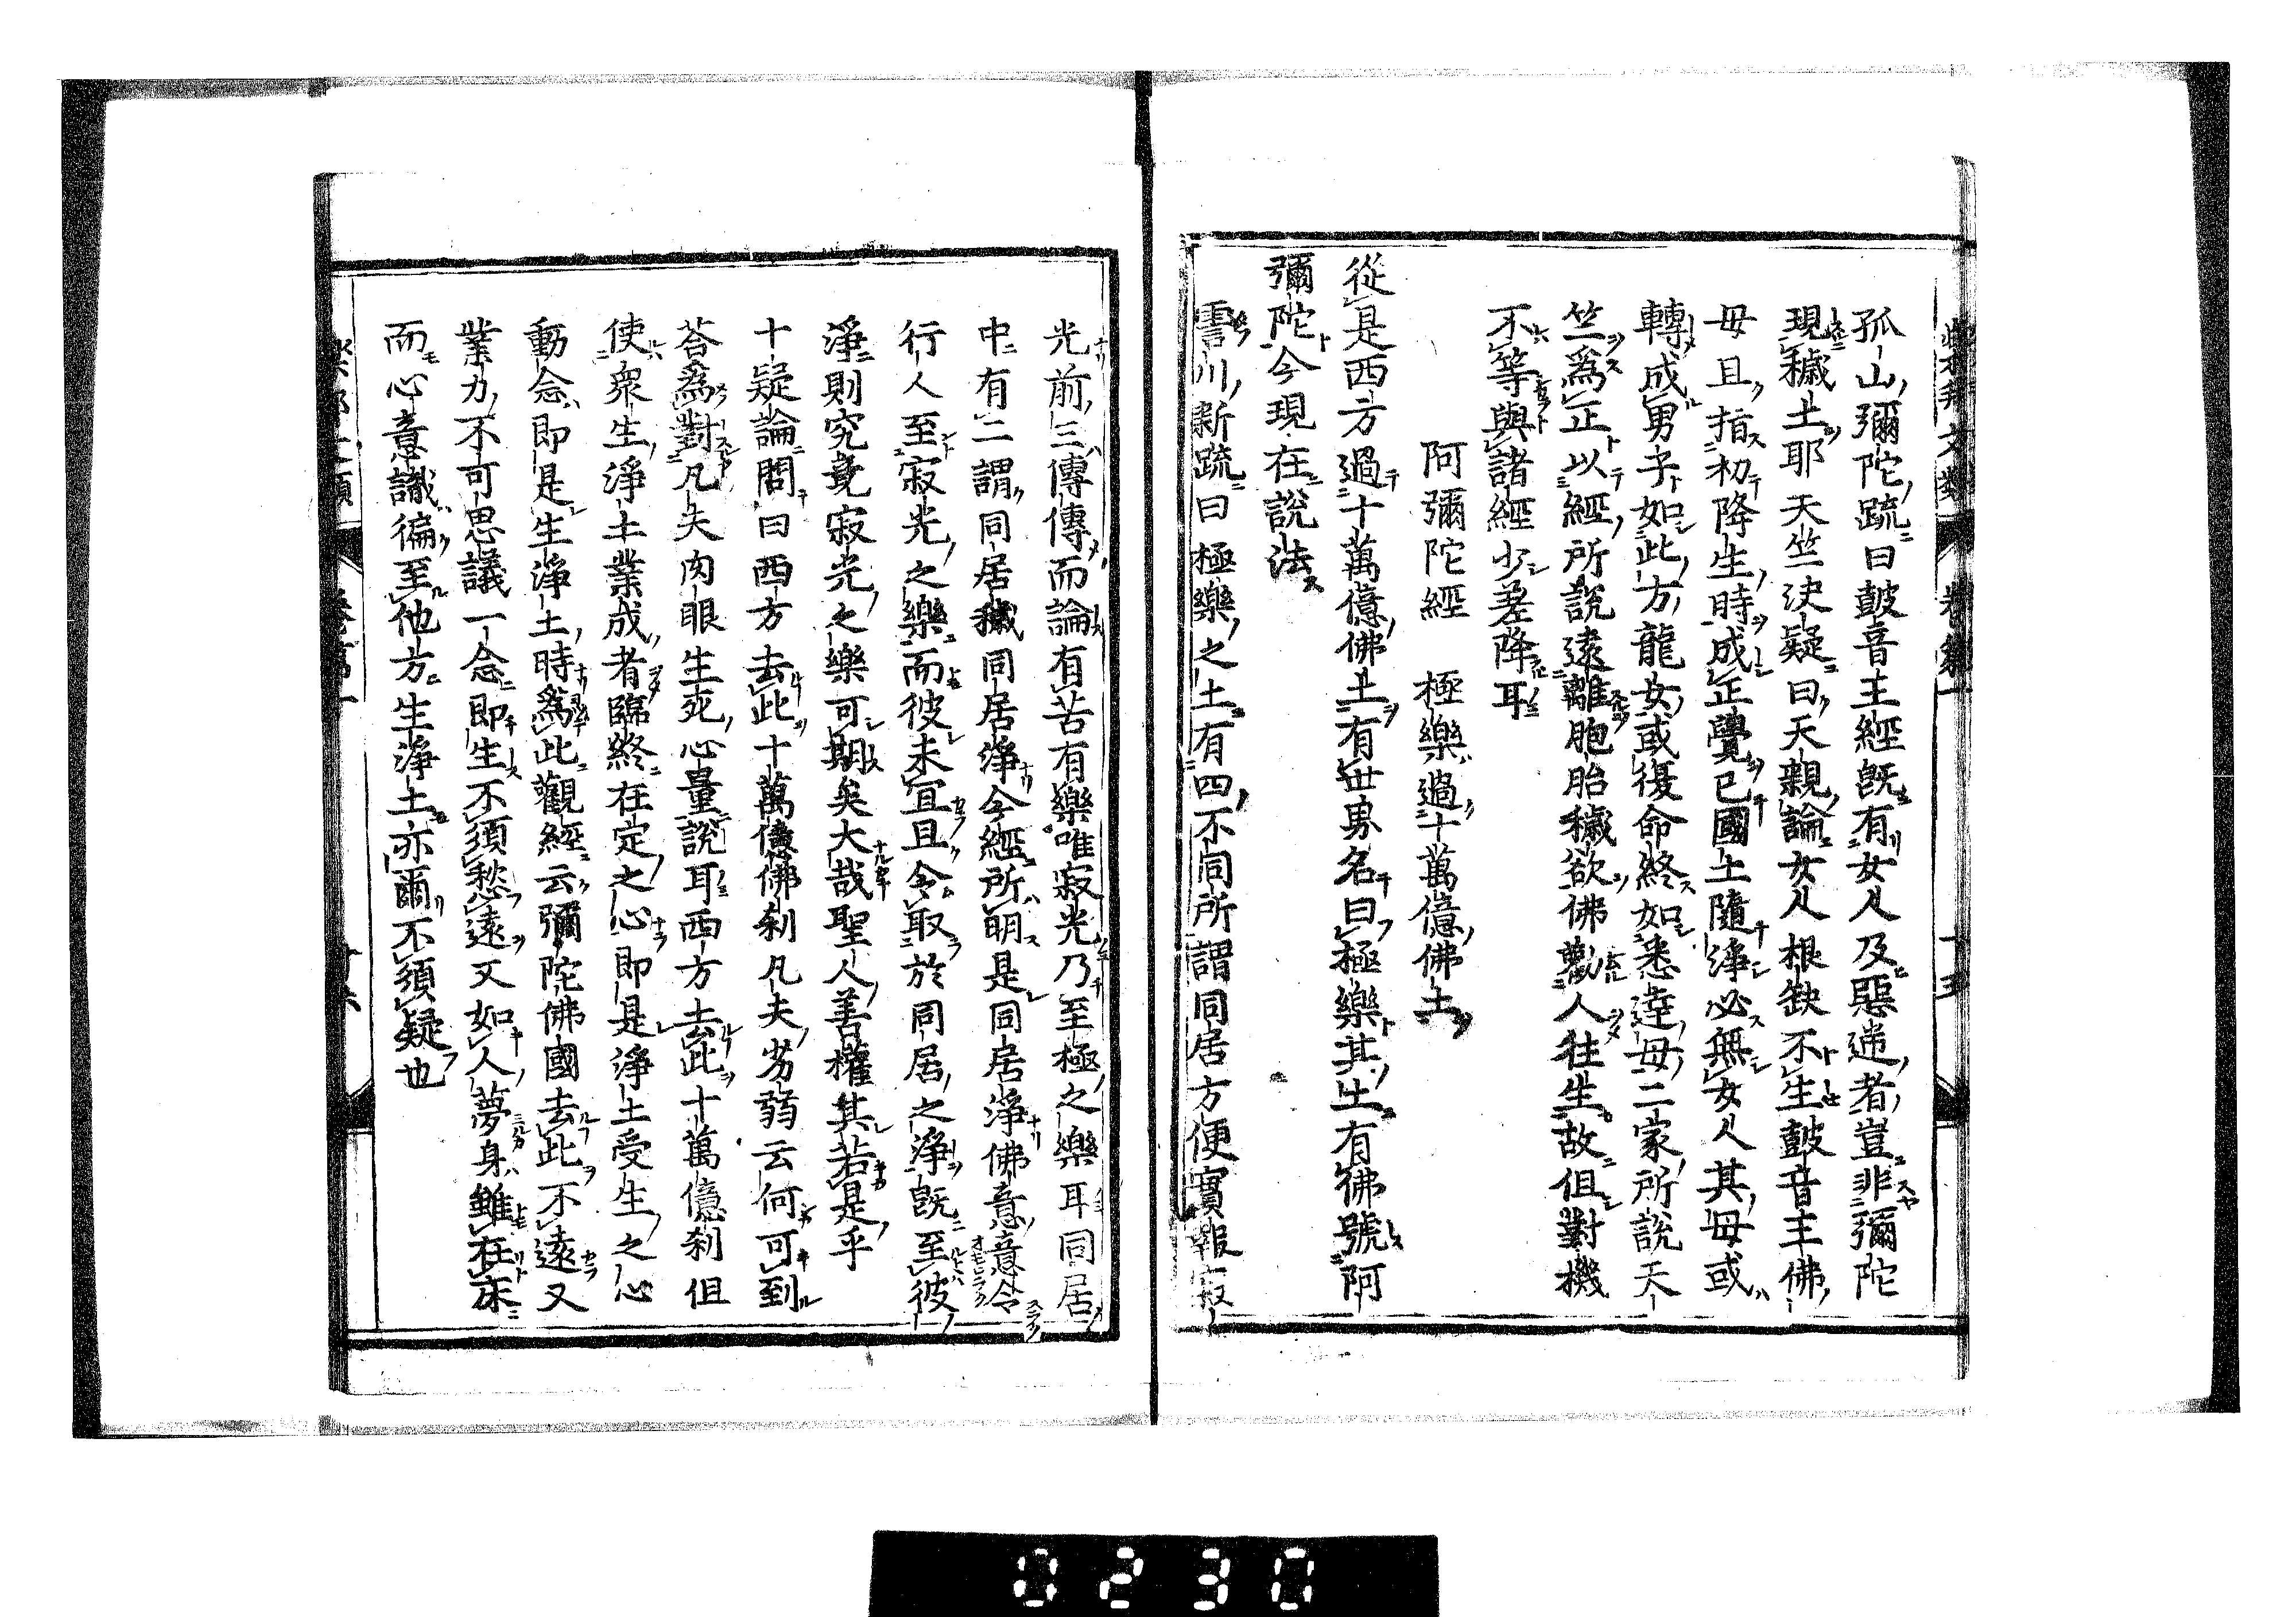 孤山彌陀疏曰鼓音王經既有女人及惡逆者豈非彌陀
現穢土耶天竺決疑曰天親論女人根缺不生鼓音王佛
母且指初降生時成正覺已國土隨淨必無女人其母或
轉成男子如此方龍女或復命終如悉達母二家所說天
竺爲正以經所說遠離胞胎穢欲佛勸人往生故但對機
不等與諸經少差降耳
阿彌陀經 極樂過十萬億佛土
從是西方過十萬億佛土有世界名曰極樂其土有佛號阿
彌陀今現在說法
霅川新疏曰極樂之土有四不同所謂同居方便實報寂
光前三傳傳而論有苦有樂唯寂光乃至極之樂耳同居
中有二謂同居穢同居淨今經所明是同居淨佛意意令
行人至寂光之樂而彼未宜且令取於同居之淨既至彼
淨則究竟寂光之樂可期矣大哉聖人善權其若是乎
十疑論問曰西方去此十萬億佛刹凡夫劣弱云何可到
荅爲對凡夫肉眼生死心量說耳西方去此十萬億刹但
使衆生淨土業成者臨終在定之心即是淨土受生之心
動念即是生淨土時爲此觀經云彌陀佛國去此不遠又
業力不可思議一念即生不須愁遠又如人夢身雖在床
而心意識徧至他方生淨土亦爾不須疑也
樂邦文類 卷第一 十六
0230